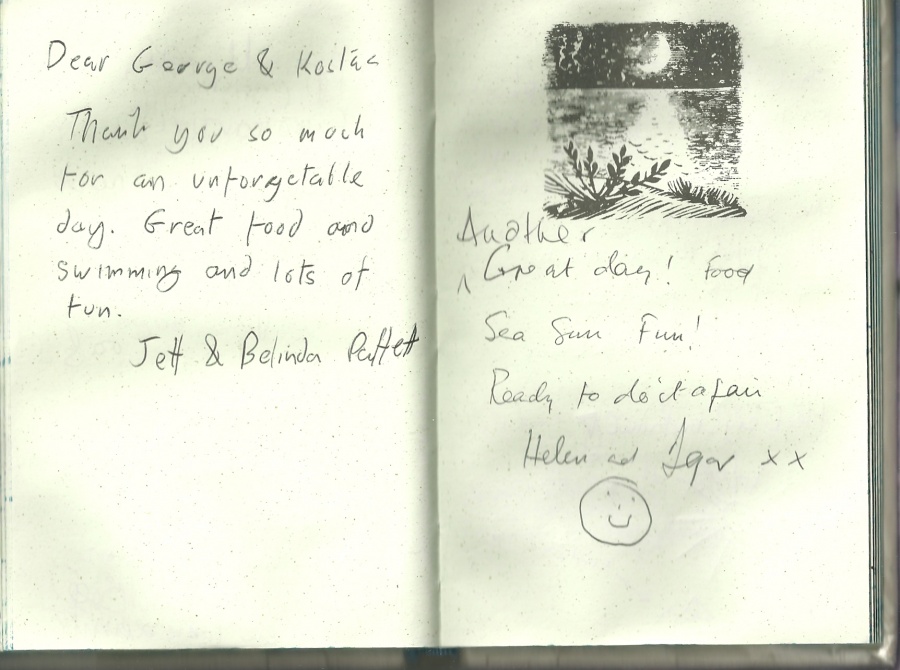 Dear George & Kostas
Thank you so much
for an unforgetable
day. Great food and
swimming and lots of
fun.
Jeff & Belinda Paffett
Another
Great day! Food
Sea Sun Fun!
Ready to do it again
Helen and Igor xx